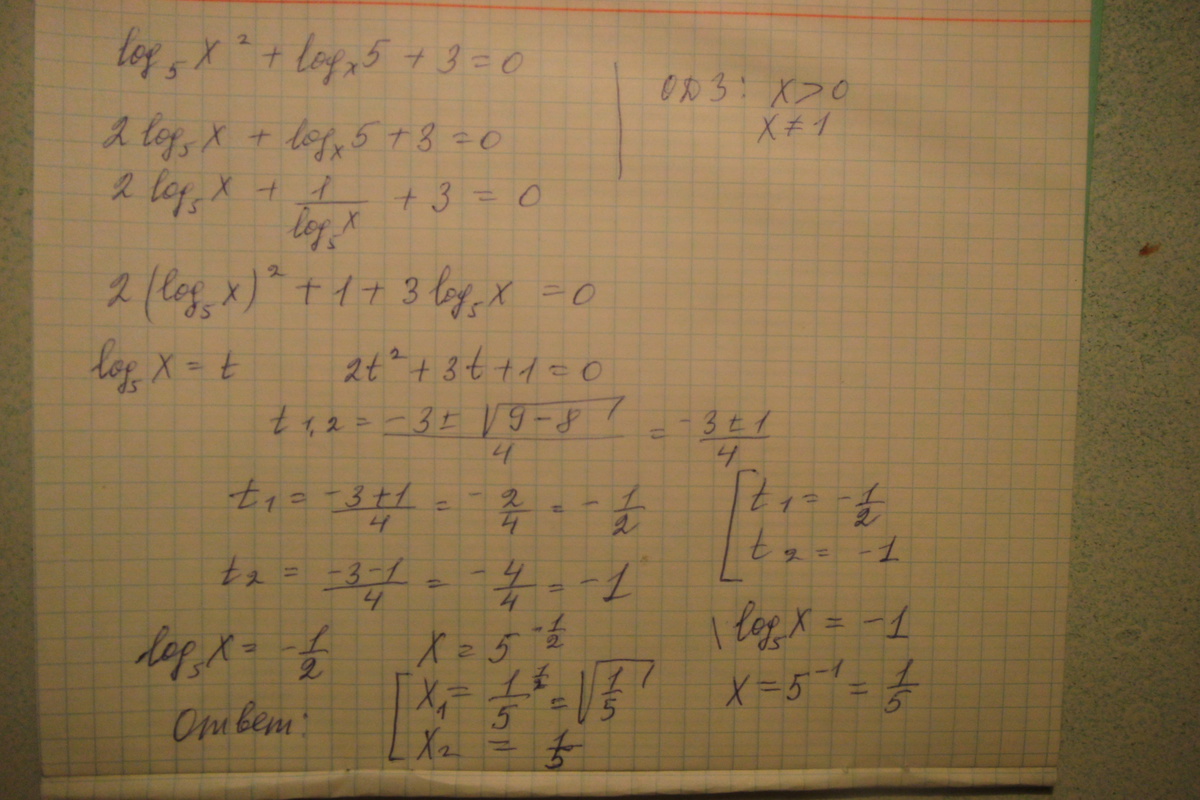 log₅ x² + logₓ 5 + 3 = 0
ОДЗ: x > 0
x ≠ 1
2 log₅ x + logₓ 5 + 3 = 0
2 log₅ x + 1/(log₅ x) + 3 = 0
2 (log₅ x)² + 1 + 3 log₅ x = 0
log₅ x = t    2t² + 3t + 1 = 0
t₁,₂ = (-3 ± √(9 - 8))/4 = (-3 ± 1)/4
t₁ = (-3+1)/4 = -2/4 = -1/2
t₂ = (-3-1)/4 = -4/4 = -1
[ t₁ = -1/2
t₂ = -1
log₅ x = -1/2    x = 5^(-1/2)
\ log₅ x = -1
x = 5⁻¹ = 1/5
Ответ: [ x₁ = 1/5^(1/2) = √(1/5)
x₂ = 1/5